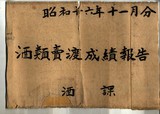 昭和十六年十一月分
酒類賣渡成績報告
酒課